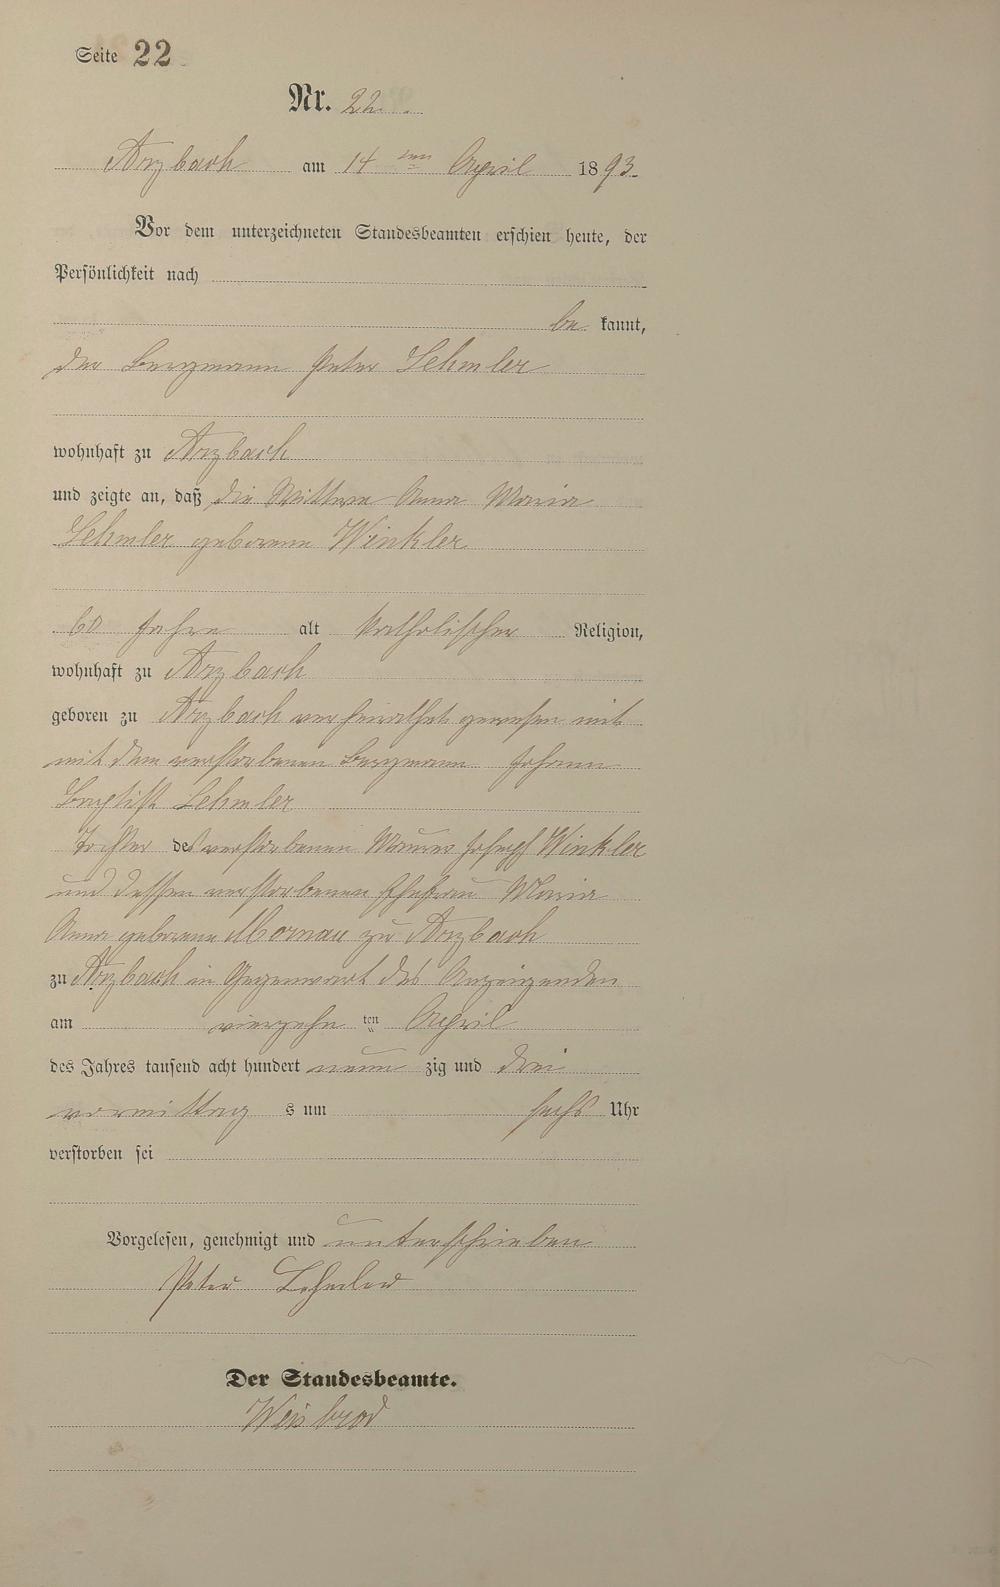 Seite 22
Nr. 22.
Arzbach am 14ten April 1893.
Vor dem unterzeichneten Standesbeamten erschien heute, der
Persönlichkeit nach
be kannt,
der Bergmann Peter Lehmler
wohnhaft zu Arzbach
und zeigte an, daß die Wittwe Anna Maria
Lehmler geborene Winkler
60 Jahre alt katholischer Religion,
wohnhaft zu Arzbach
geboren zu Arzbach verheirathet gewesen mit
mit dem verstorbenen Bergmann Johann
Baptist Lehmler
Tochter des verstorbenen Maurer Joseph Winkler
und dessen verstorbenen Ehefrau Maria
Anna geborene Mornau zu Arzbach
zu Arzbach in Gegenwart des Anzeigenden
am vierzehn ten April
des Jahres tausend acht hundert neun zig und drei
vormittag s um sechs Uhr
verstorben sei
Vorgelesen, genehmigt und unterschrieben
Peter Lehmler
Der Standesbeamte.
Weisbrod